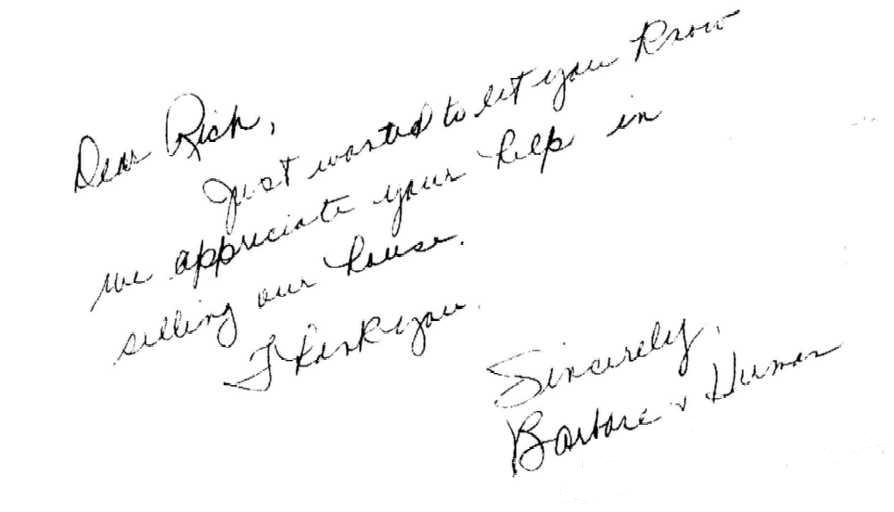 Dear Rich,
Just wanted to let you know
we appreciate your help in
selling our house.
Thank you.
Sincerely,
Barbara &